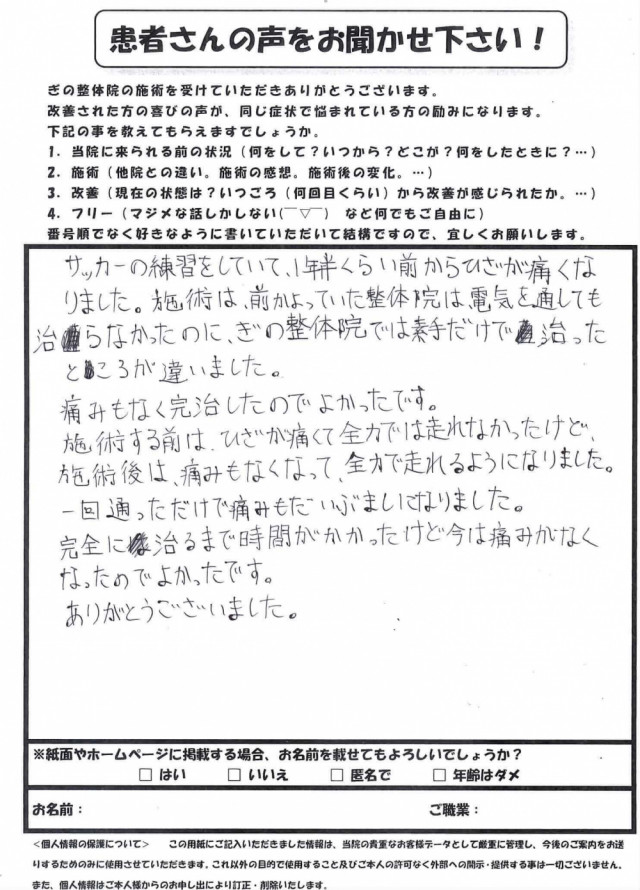 患者さんの声をお聞かせ下さい！
ぎの整体院の施術を受けていただきありがとうございます。
改善された方の喜びの声が、同じ症状で悩まれている方の励みになります。
下記の事を教えてもらえますでしょうか。
1．当院に来られる前の状況（何をして？いつから？どこが？何をしたときに？…）
2．施術（他院との違い。施術の感想。施術後の変化。…）
3．改善（現在の状態は？いつごろ（何回目くらい）から改善が感じられたか。…）
4．フリー（マジメな話しかしない(￣▽￣)　など何でもご自由に）
番号順でなく好きなように書いていただいて結構ですので、宜しくお願いします。
サッカーの練習をしていて、1年半くらい前からひざが痛くな
りました。施術は、前かよっていた整体院は、電気を通しても
治らなかったのに、ぎの整体院では素手だけで治った
ところが違いました。
痛みもなく完治したのでよかったです。
施術する前は、ひざが痛くて全力では走れなかったけど、
施術後は、痛みもなくなって、全力で走れるようになりました。
一回通っただけで痛みもだいぶましになりました。
完全に治るまで時間がかかったけど今は痛みがなく
なったのでよかったです。
ありがとうございました。
※紙面やホームページに掲載する場合、お名前を載せてもよろしいでしょうか？
□ はい　□ いいえ　□ 匿名で　□ 年齢はダメ
お名前：　ご職業：
<個人情報の保護について>　この用紙にご記入いただきました情報は、当院の貴重なお客様データとして厳重に管理し、今後のご案内をお送
りするためのみに使用させていただきます。これ以外の目的で使用すること及びご本人の許可なく外部への開示・提供する事は一切ございません。
また、個人情報はご本人様からのお申し出により訂正・削除いたします。